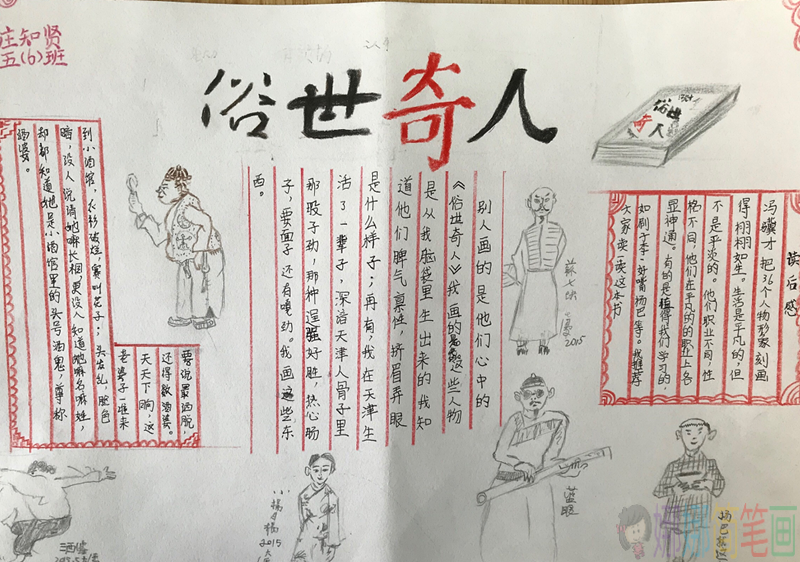 庄知贤
五(6)班
俗世奇人
俗世
奇人
读后感
冯骥才把36个人物形象刻画
得栩栩如生。生活是平凡的,但
不是平淡的。他们职业不同,性
格不同,他们在平凡的的职业上各
显神通。有的是值得我们学习的,
如刷子李,好嘴杨巴等。我推荐
大家卖一卖这本书
别人画的是他们心中的
《俗世奇人》我画的是这些人物
是从我脑袋里生出来的我知
道他们脾气禀性,挤眉弄眼
是什么样子;再有,我在天津生
活了一辈子,深谙天津人骨子里
那股子劲,那种逞强好胜,热心肠
子,要面子还有嘎劲。我画这些东
西。
到小酒馆,衣衫破烂,赛叫花子;头发乱,脸色
暗,没人说清她嘛长相,更没人知道她嘛名嘛姓,
却都知道她是小酒馆里的头号酒鬼,尊称
酒婆。
要说最洒脱,
还得数酒婆。
天天下晌,这
老婆子一准来
苏七块
2015
蓝眼
小杨月楼
2015
酒婆
杨巴